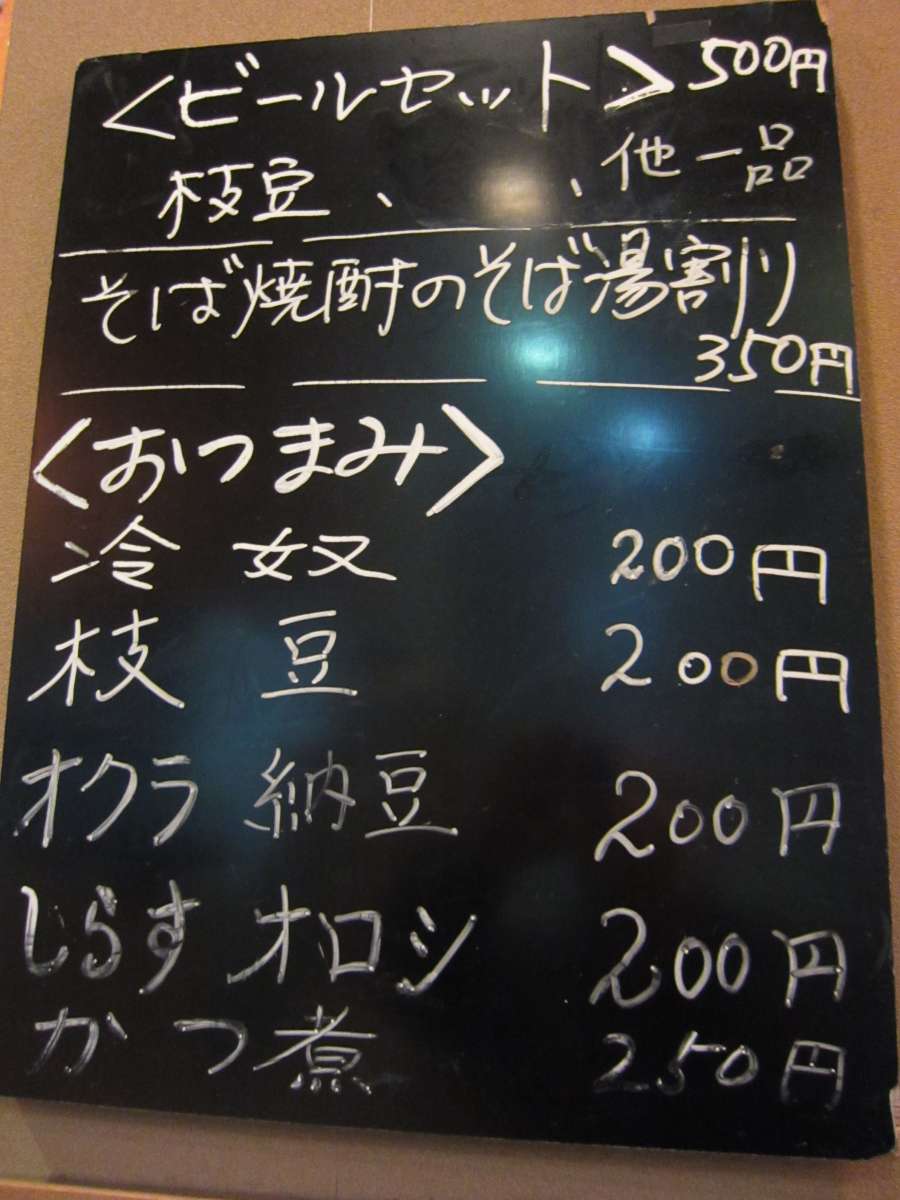 ＜ビールセット＞ 500円
枝豆、 、他一品
そば焼酎のそば湯割り
350円
＜おつまみ＞
冷奴 200円
枝豆 200円
オクラ納豆 200円
しらすオロシ 200円
かつ煮 250円